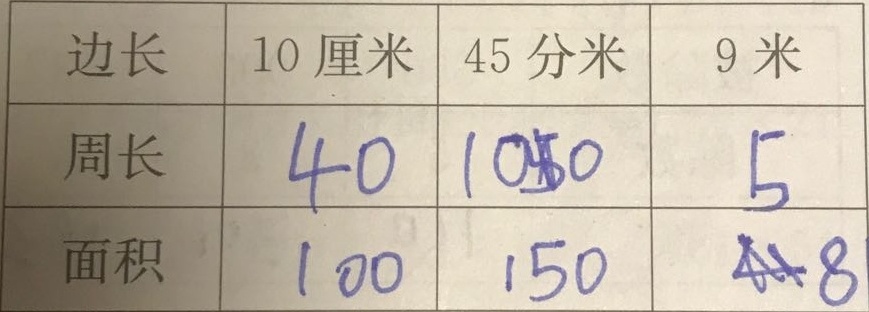 边长 10厘米 45分米 9米
周长 40 5
面积 100 150 8